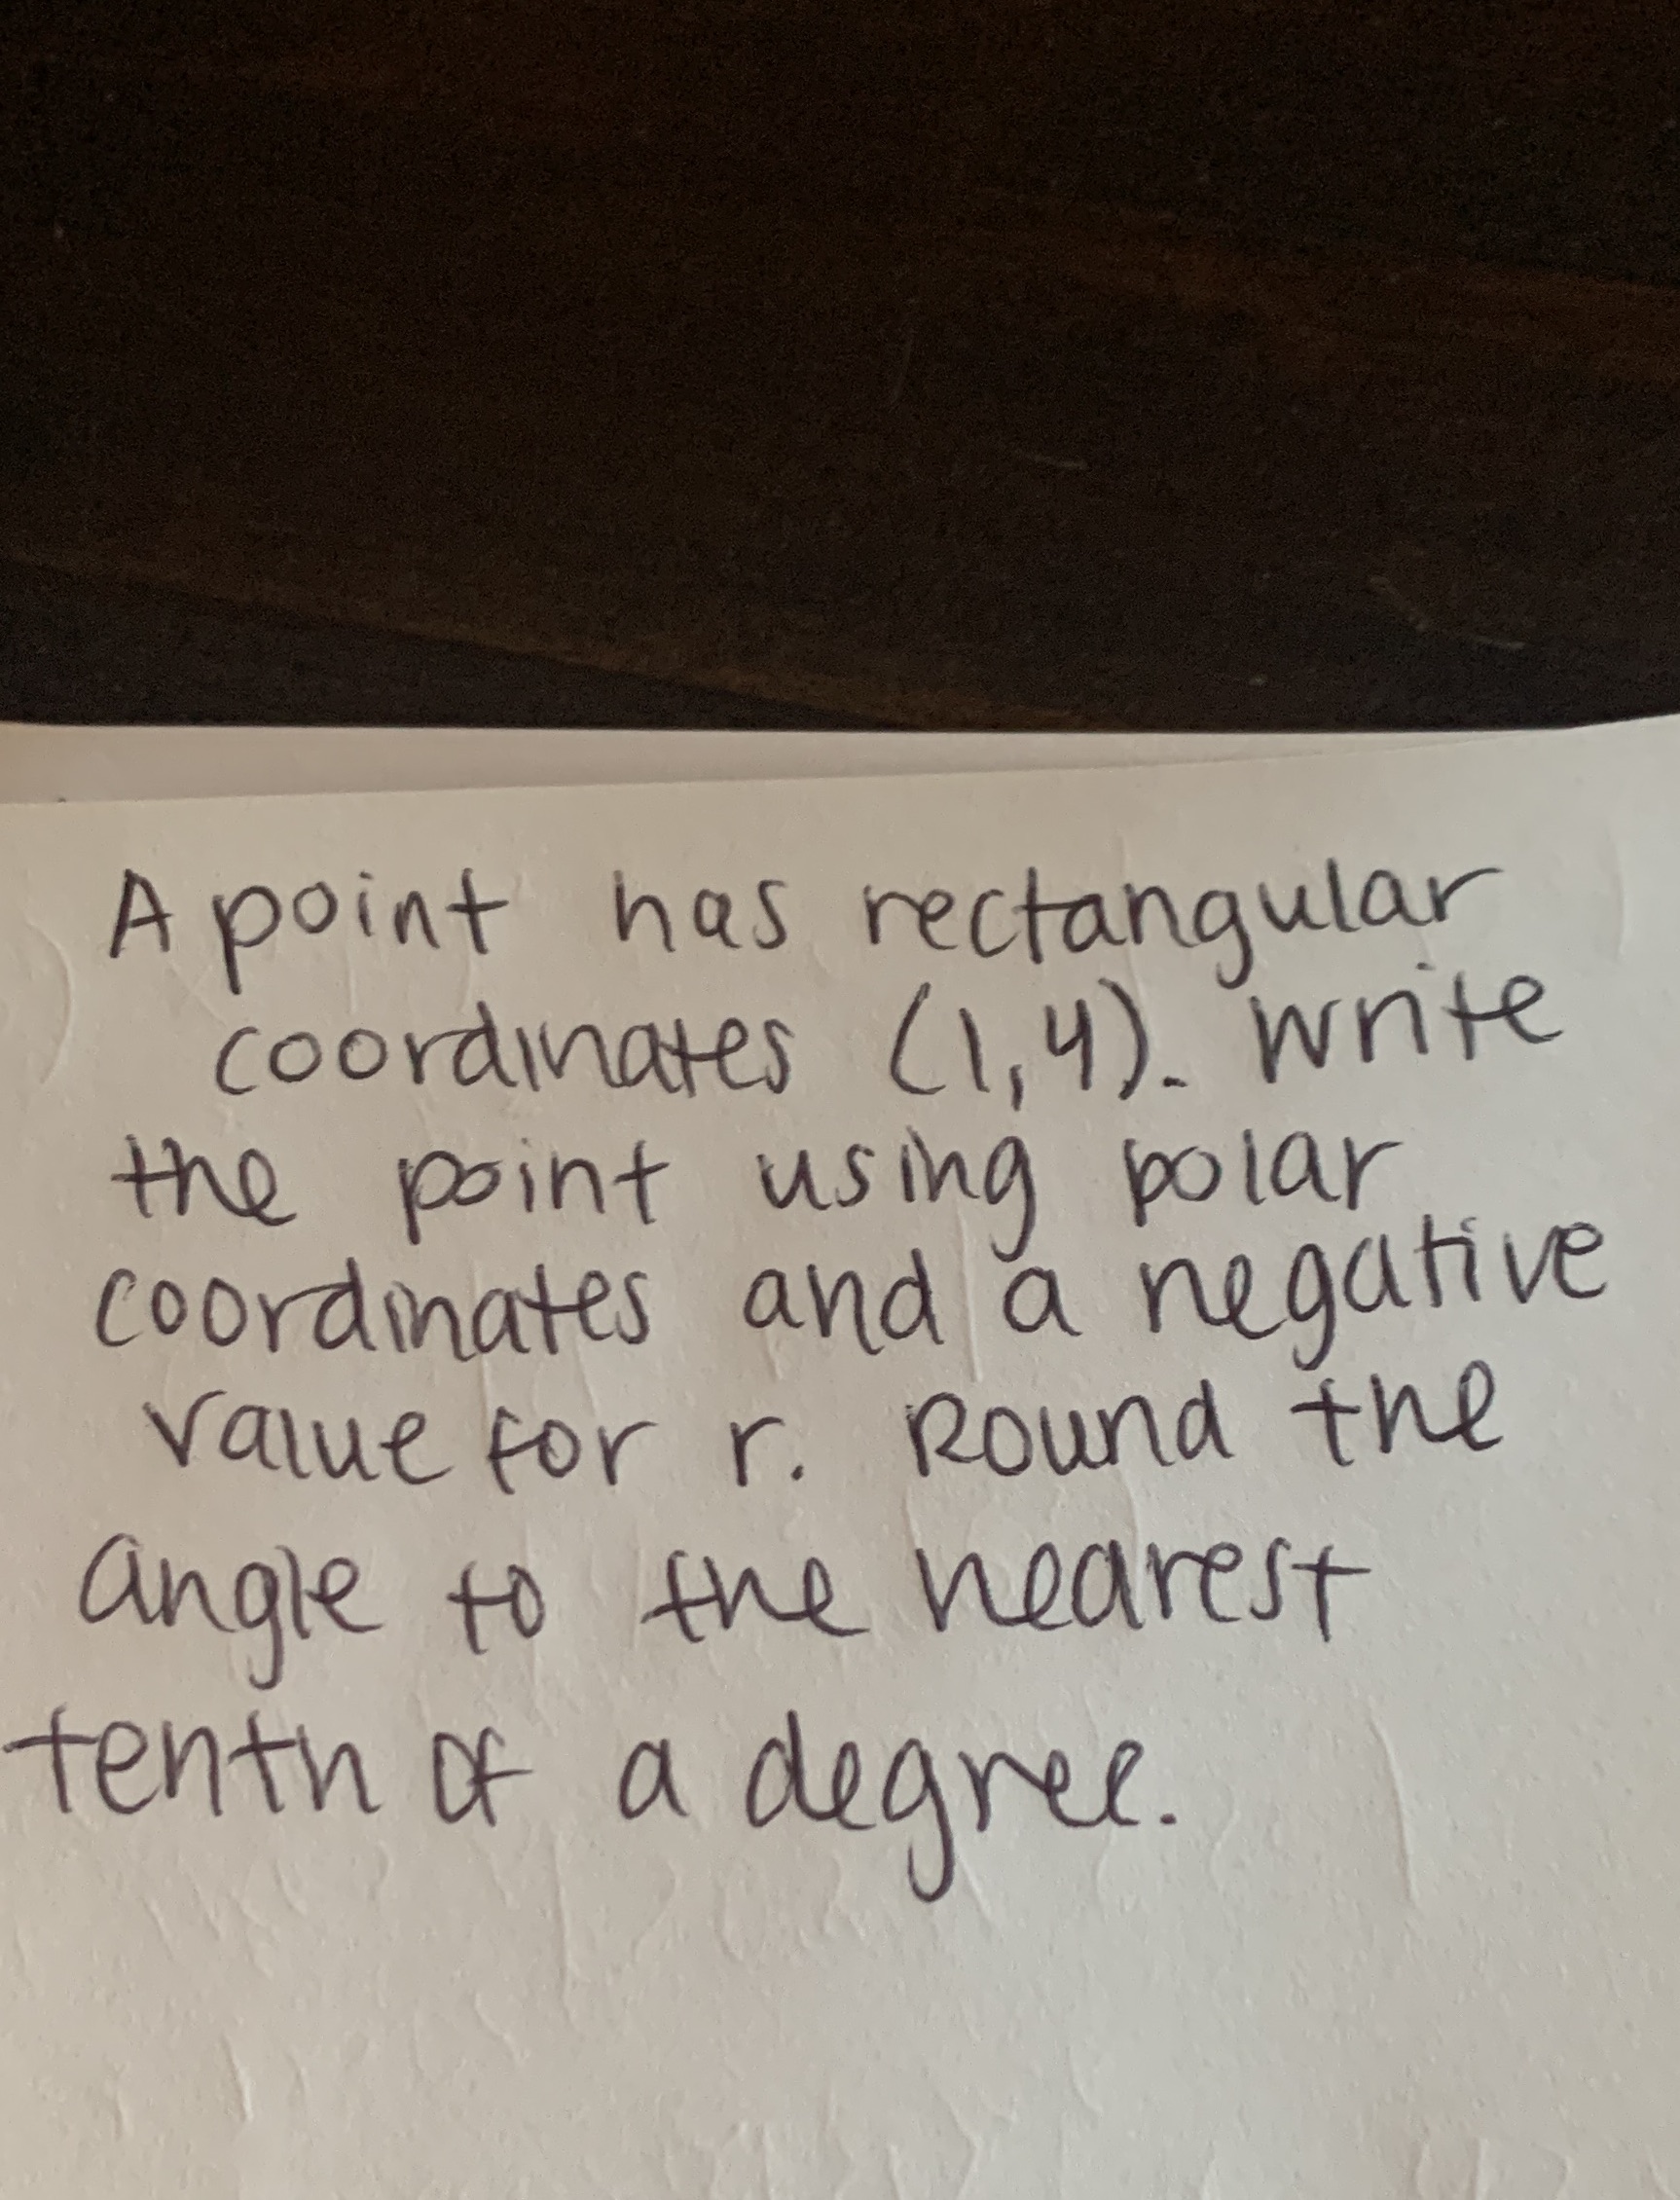 A point has rectangular
coordinates (1,4). Write
the point using polar
coordinates and a negative
value for r. Round the
angle to the nearest
tenth of a degree.